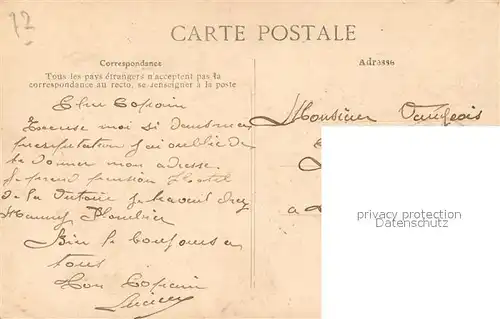 77
CARTE POSTALE
Correspondance
Tous les pays étrangers n'acceptent pas la
correspondance au recto, se renseigner à la poste
Adresse
Cher Copain
Excuse moi si dans ma
précipitation j'ai oublié de
te donner mon adresse
je prend pension Hotel
de la Victoire je travail chez
Bien le bonjours a
tous
Ton Copain
Lucien
Monsieur
a
privacy protection
Datenschutz